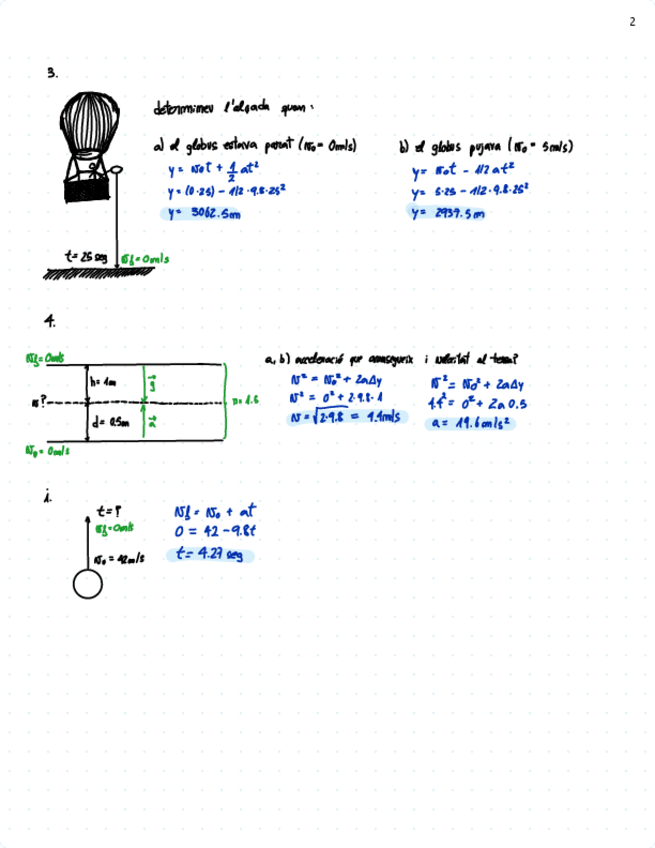 2
3.
determineu l'alçada quan:
a) el globus estava parat (v₀ = 0m/s)
y = v₀t + 1/2 at²
y = (0·25) - 1/2 · 9.8·25²
y = 3062.5m
b) el globus pujava (v₀ = 5m/s)
y = v₀t - 1/2 at²
y = 5·25 - 1/2 · 9.8·25²
y = 2937.5m
t = 25 seg
vf = 0m/s
4.
vf = 0m/s
h = 1m
g
v?
d = 0.5m
a
v₀ = 0m/s
a, b) acceleració que aconsegueix i velocitat al terra?
v² = v₀² + 2aΔy
v² = 0² + 2·9.8·1
v = √2·9.8 = 4.4m/s
v² = v₀² + 2aΔy
4.4² = 0² + 2a 0.5
a = 19.6m/s²
i.
t = ?
vf = 0m/s
v₀ = 42m/s
vf = v₀ + at
0 = 42 - 9.8t
t = 4.27 seg